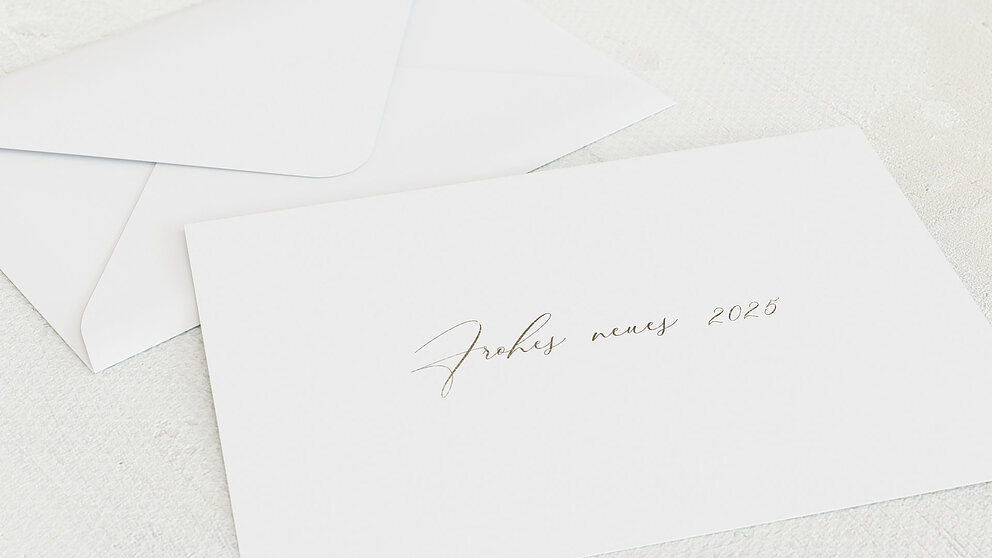 Frohes neues 2025